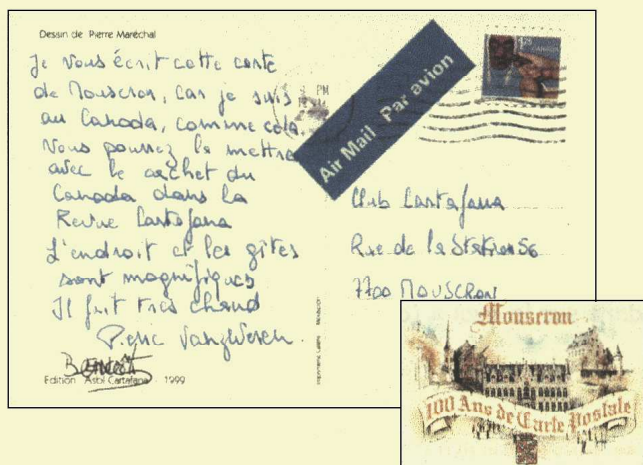 Dessin de Pierre Maréchal
Je vous écrit cette carte
de Mouscron, car je suis
au Canada, comme cela
Vous pourrez la mettre
avec le cachet du
Canada dans la
Revue Cartafana
L'endroit et les gîtes
sont magnifiques
Il fait très chaud
Edition Asbl Cartafana 1999
PM
1.25 CANADA
Air Mail Par avion
Club Cartafana
Rue de la Station 56
7700 MOUSCRON
Mouscron
100 Ans de Carte Postale